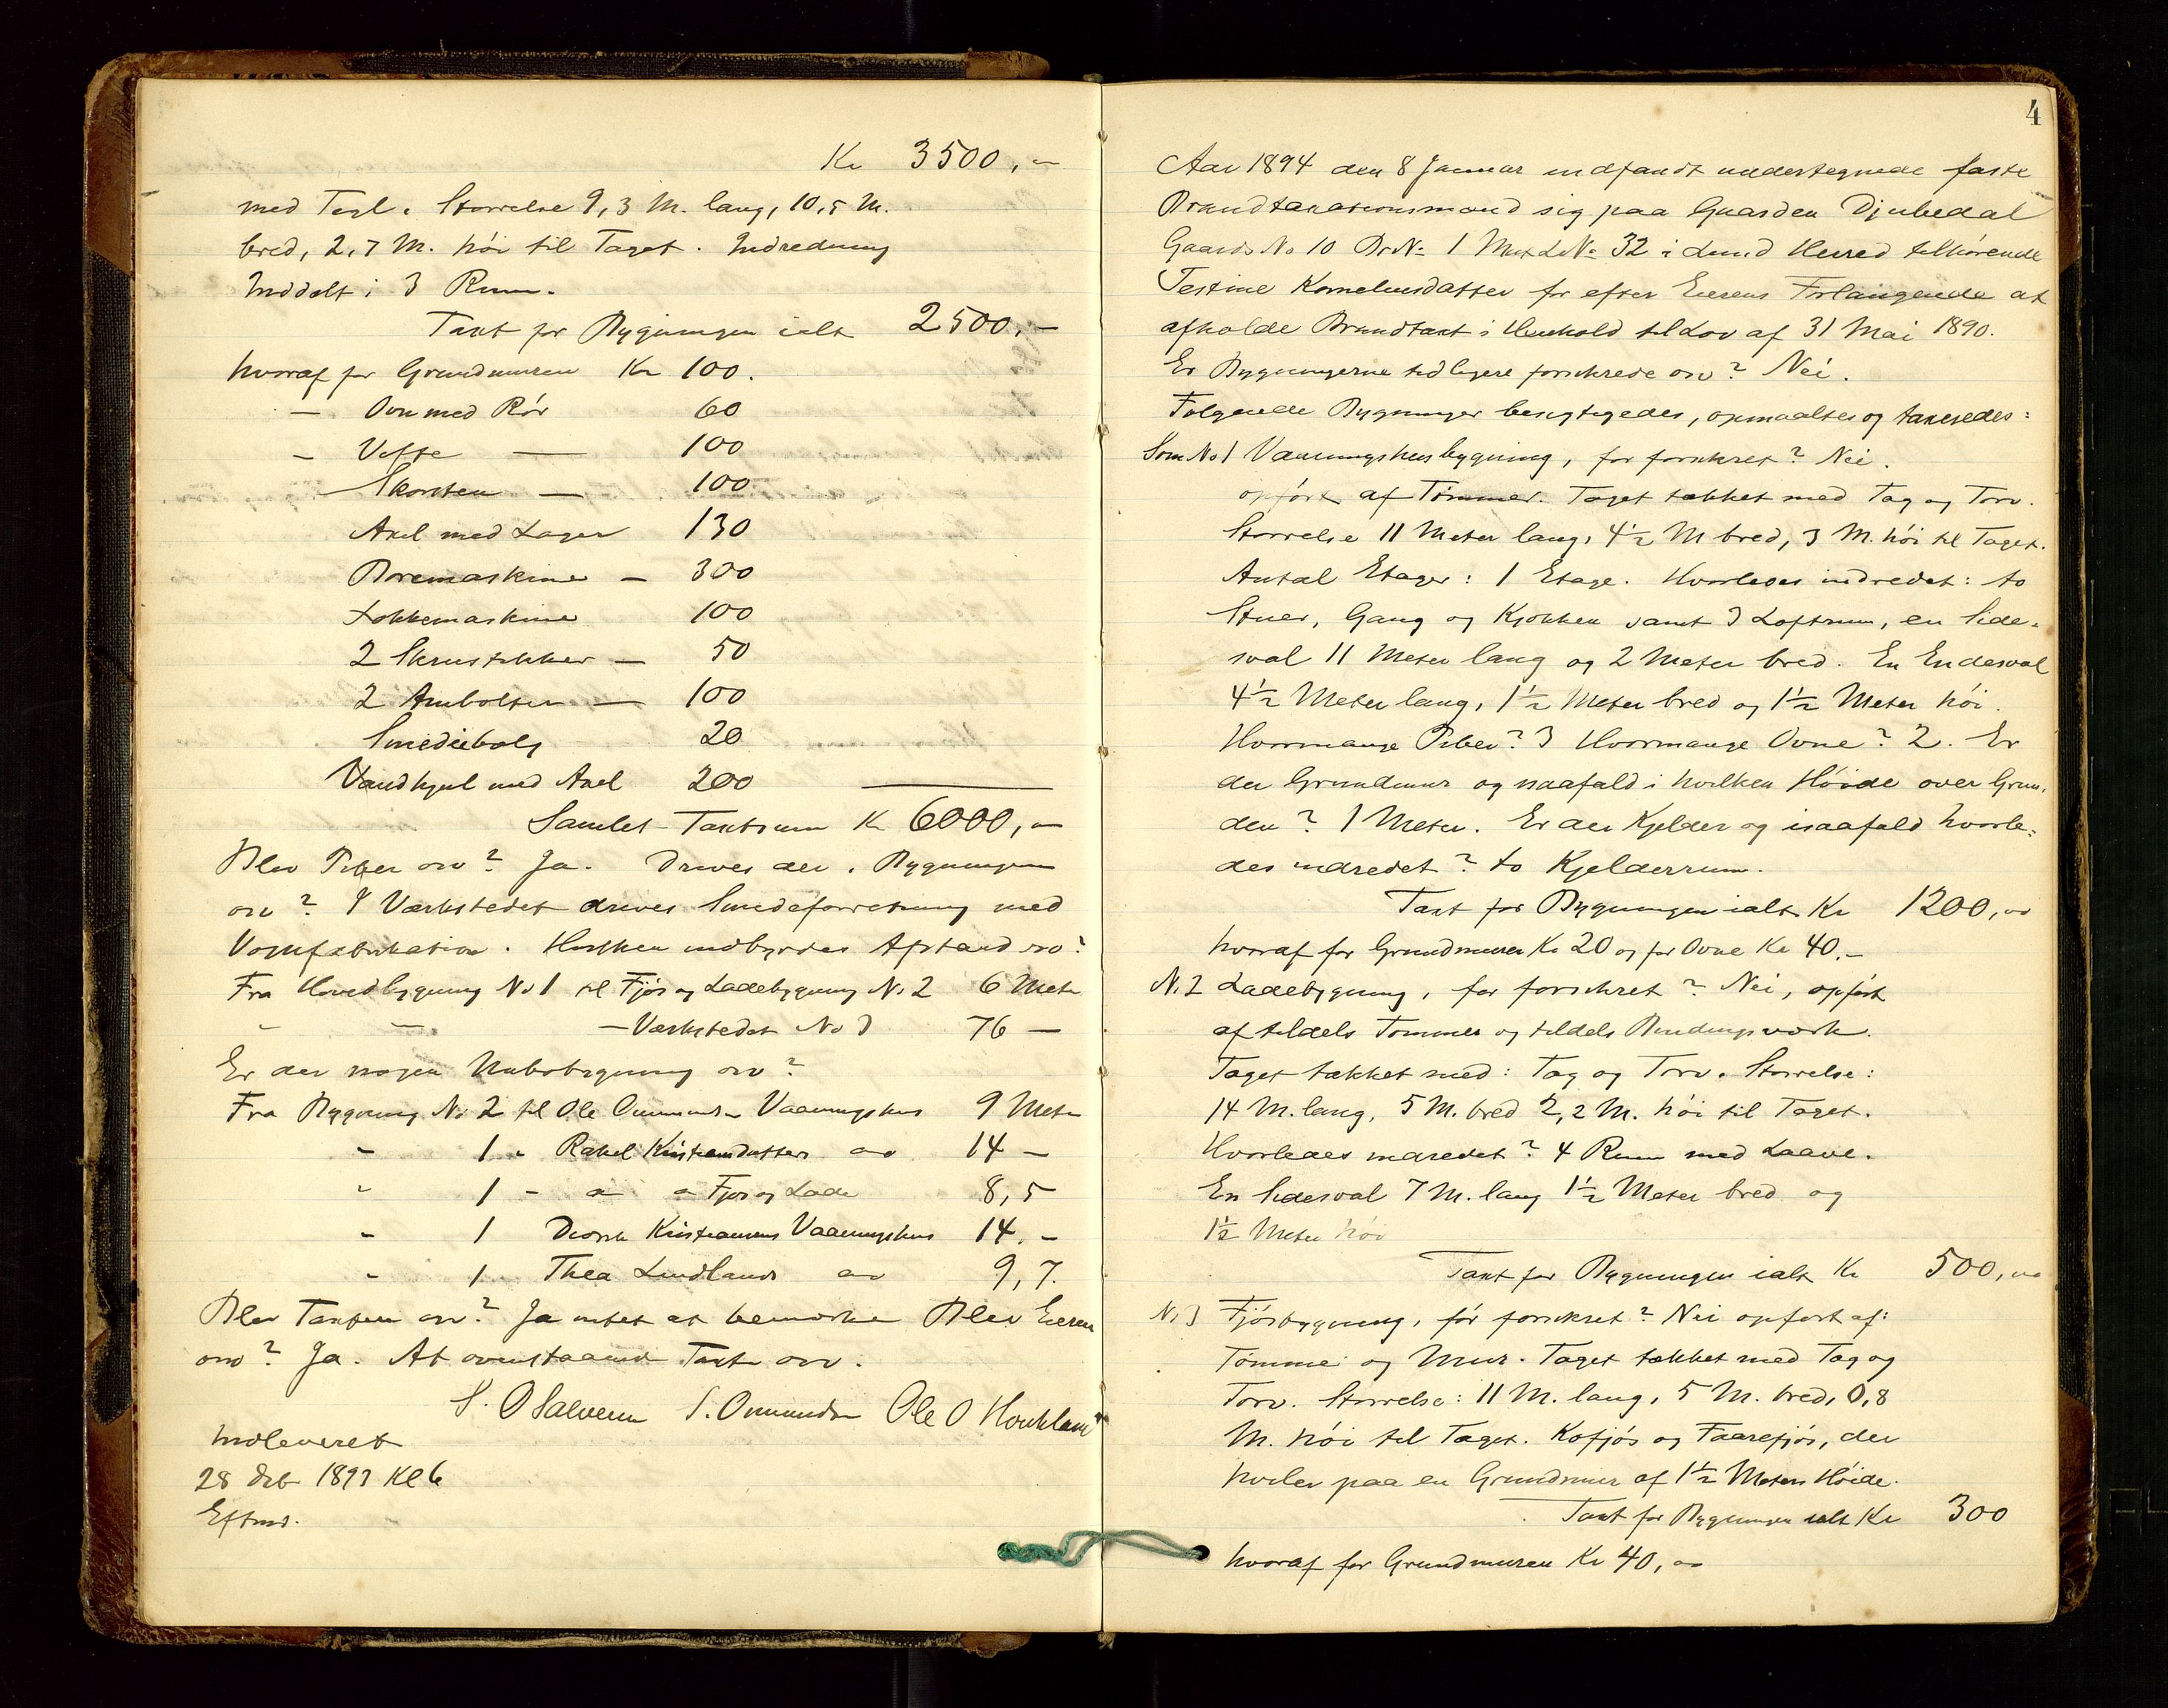 Kr 3500,–
med Tegl. Størrelse 9,3 M. lang, 10,5 M.
bred, 2,7 M. høi til Taget. Indredning
Inddelt i 3 Rum.
Taxt for Bygningen ialt 2500,–
hvoraf for Grundmuren Kr 100.
— Ovn med Rør 60
– Veffe — 100
– Skorsten — 100
Axel med Lager 130
Boremaskine — 300
Lokkemaskine 100
2 Skrustikker — 50
2 Ambolter — 100
Smediebælg 20
Vandhjul med Axel 200
Samlet Taxtsum Kr 6000,–
Blev Piber osv? Ja. Drives der i Bygningen
osv? I Værkstedet drives Smedeforretning med
Vognfabrikation. Hvilken indbyrdes Afstand osv?
Fra Hovedbygning No 1 til Fjøs og Ladebygning No 2 6 Meter
– – – Værkstedet No 3 76 —
Er der nogen Nabobygning osv?
Fra Bygning No 2 til Ole Ommunds. Vaaningshus 9 Meter
" 1 " Rakel Kristensdatter do 14 —
" 1 – " " Fjøs og Lade 8,5
" 1 Kristiansens Vaaningshus 14.–
" 1 Thea Lindlands do 9,7.
Blev Taxten osv? Ja intet at bemærke Blev Eieren
osv? Ja. At ovenstaaende Taxt osv.
S. O Salvesen S. Ommundsen Ole O Haukland
Indleveret
28 Deb 1893 Kl 6
Eftmd.
4
Aar 1894 den 8 Januar indfandt undertegnede faste
Brandtaxationsmænd sig paa Gaarden Djubedal
Gaards No 10 Br No 1 Mat L No 32 i Lund Herred tilhørende
Testine Korneliusdatter for efter Eierens Forlangende at
afholde Brandtaxt i Henhold til Lov af 31 Mai 1890.
Er Bygningerne tidligere forsikrede osv? Nei.
Følgende Bygninger besigtigedes, opmaaltes og taxeredes:
Som No 1 Vaaningshusbygning, før forsikret? Nei.
opført af Tømmer. Taget tækket med Tag og Torv.
Størrelse 11 Meter lang, 4½ M bred, 3 M. høi til Taget.
Antal Etager: 1 Etage. Hvorledes indredet: to
Stuer, Gang og Kjøkken samt 3 Loftrum, en Side-
sval 11 Meter lang og 2 Meter bred. En Endesval
4½ Meter lang, 1½ Meter bred og 1½ Meter høi.
Hvormange Piber? 3 Hvormange Ovne? 2. Er
der Grundmur og isaafald i hvilken Høide over Grun-
den? 1 Meter. Er der Kjelder og isaafald hvorle-
des indredet? to Kjelderrum.
Taxt for Bygningen ialt Kr 1200,00
hvoraf for Grundmuren Kr 20 og for Ovne Kr 40.–
No 2 Ladebygning, før forsikret? Nei, opført
af tildels Tømmer og tildels Bindingsværk.
Taget tækket med: Tag og Torv. Størrelse:
14 M. lang, 5 M. bred 2,2 M. høi til Taget.
Hvorledes indredet? 4 Rum med Laave.
En Sidesval 7 M. lang 1½ Meter bred og
1½ Meter høi
Taxt for Bygningen ialt Kr 500,00
No 3 Fjøsbygning, før forsikret? Nei opført af:
Tømmer og Mur. Taget tækket med Tag og
Torv. Størrelse: 11 M. lang, 5 M. bred, 0,8
M. høi til Taget. Kofjøs og Faarefjøs, der
hviler paa en Grundmur af 1½ Meters Høide.
Taxt for Bygningen ialt Kr 300
hvoraf for Grundmuren Kr 40,00